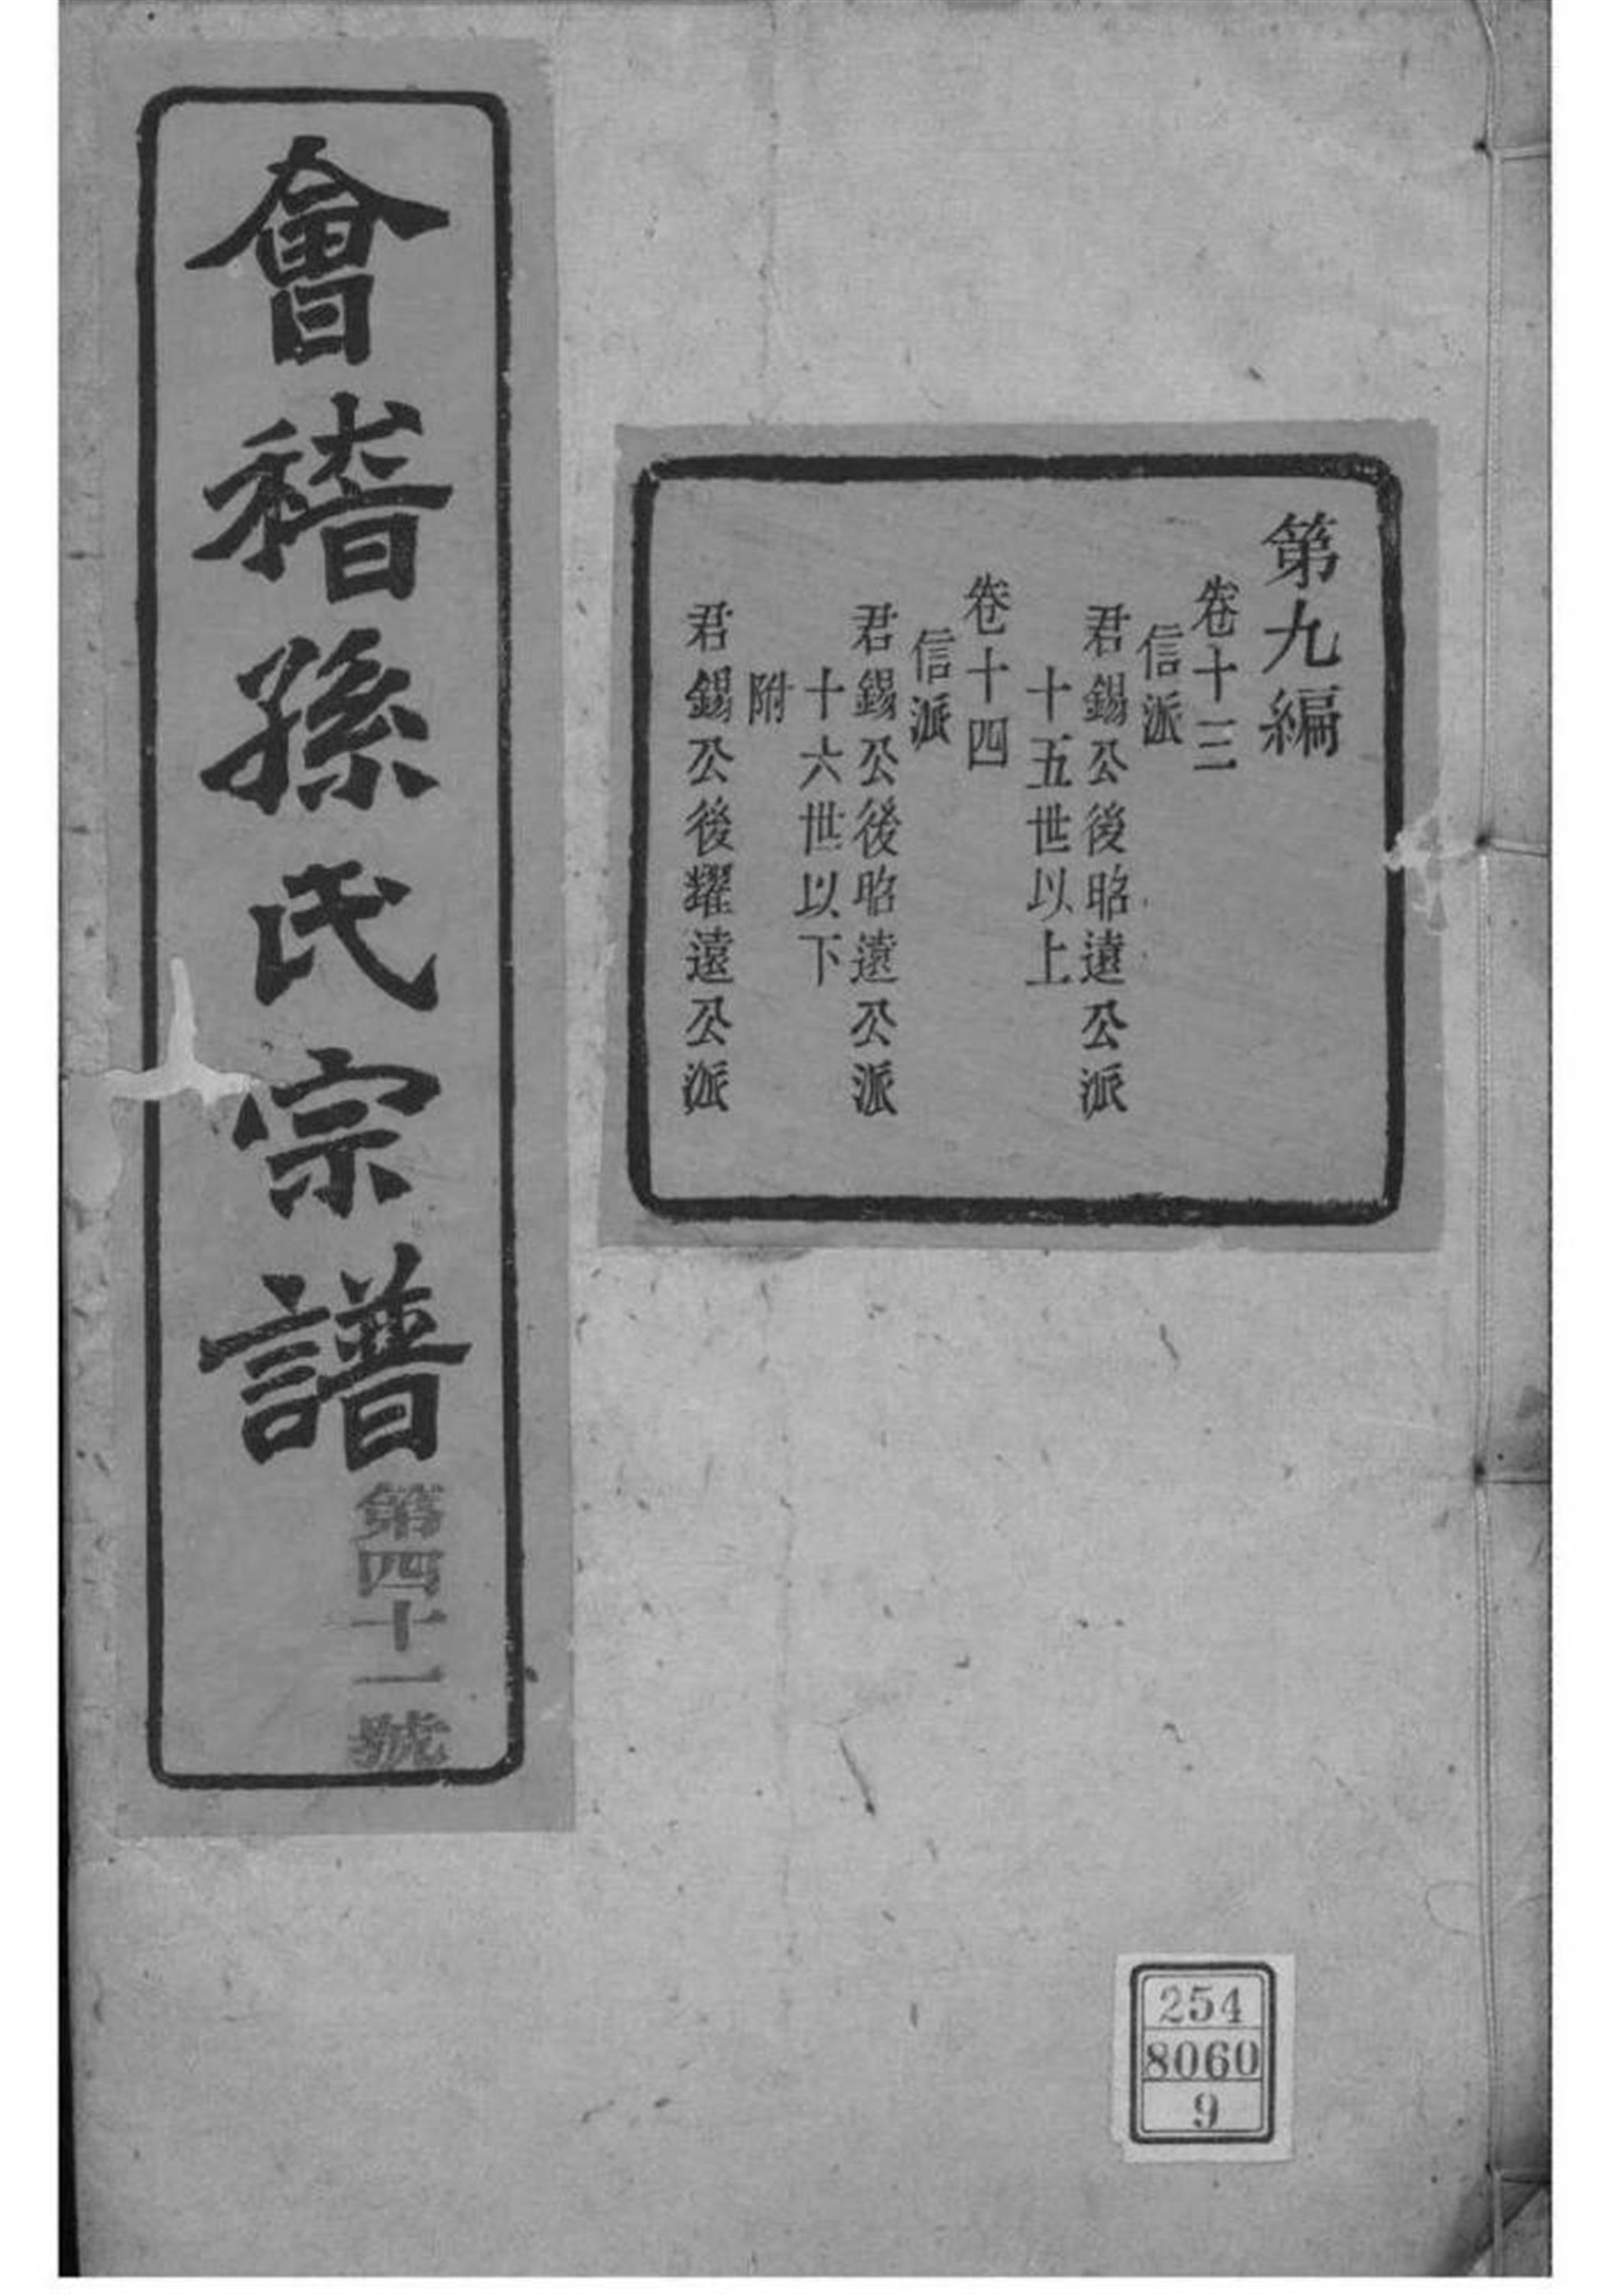 第九編
卷十三
信派
君錫公後昭遠公派
十五世以上
卷十四
信派
君錫公後昭遠公派
十六世以下
附
君錫公後耀遠公派
會稽孫氏宗譜
第四十一號
254
8060
9